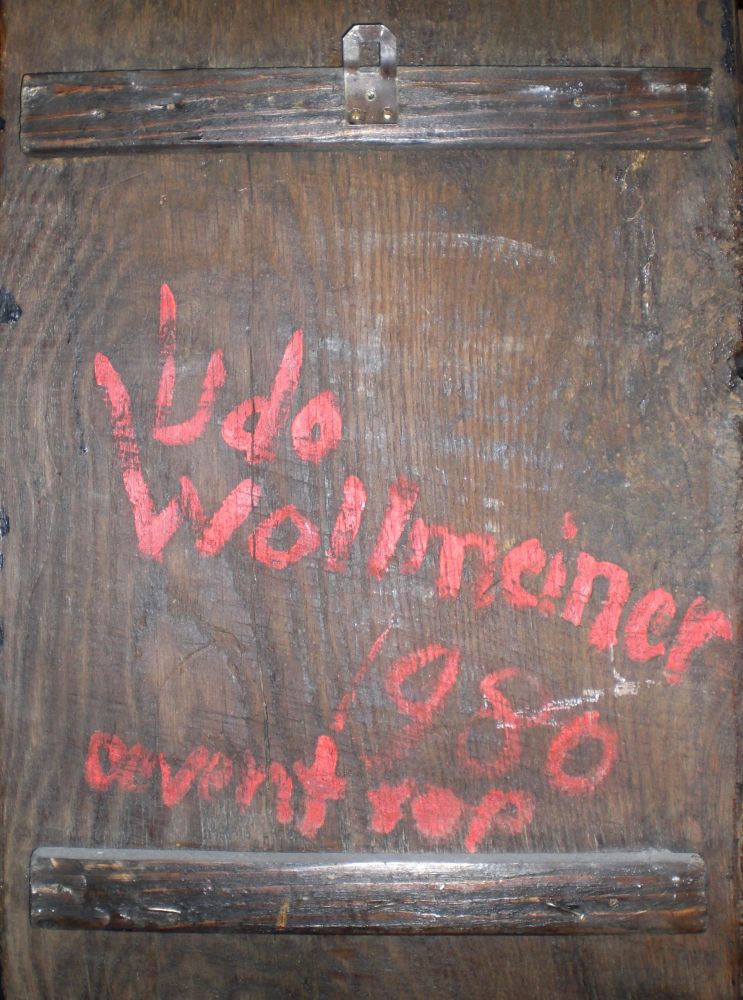 Udo
Wollmeiner
1980
oevent rop